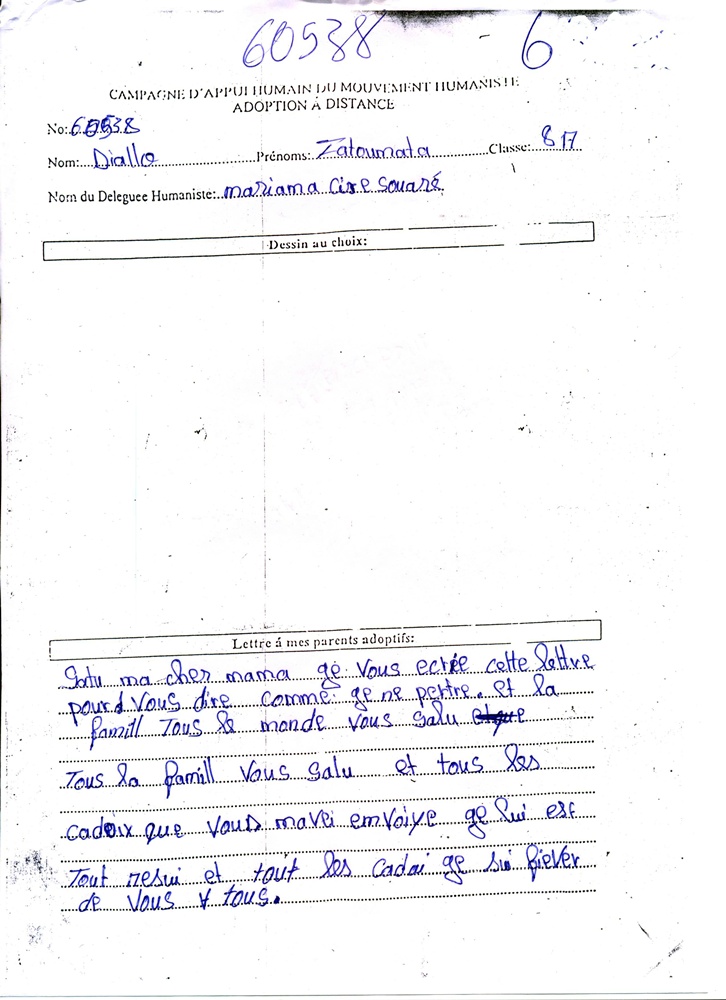 60538 - 6
CAMPAGNE D'APPUI HUMAIN DU MOUVEMENT HUMANISTE
ADOPTION À DISTANCE
No: 60538
Nom: Diallo Prénoms: Fatoumata Classe: 8 17
Nom du Deleguee Humaniste: mariama Cire Souaré
Dessin au choix:
Lettre á mes parents adoptifs:
Salu ma cher mama ge vous ecrée cette lettre
pourd vous dire comme ge ne pertre. et la
famill Tous le monde vous salu
Tous la famill vous salu et tous les
cadoix que vous mavei envoiye ge lui est
Tout resui et tout les cadai ge sui fiever
de vous tous.